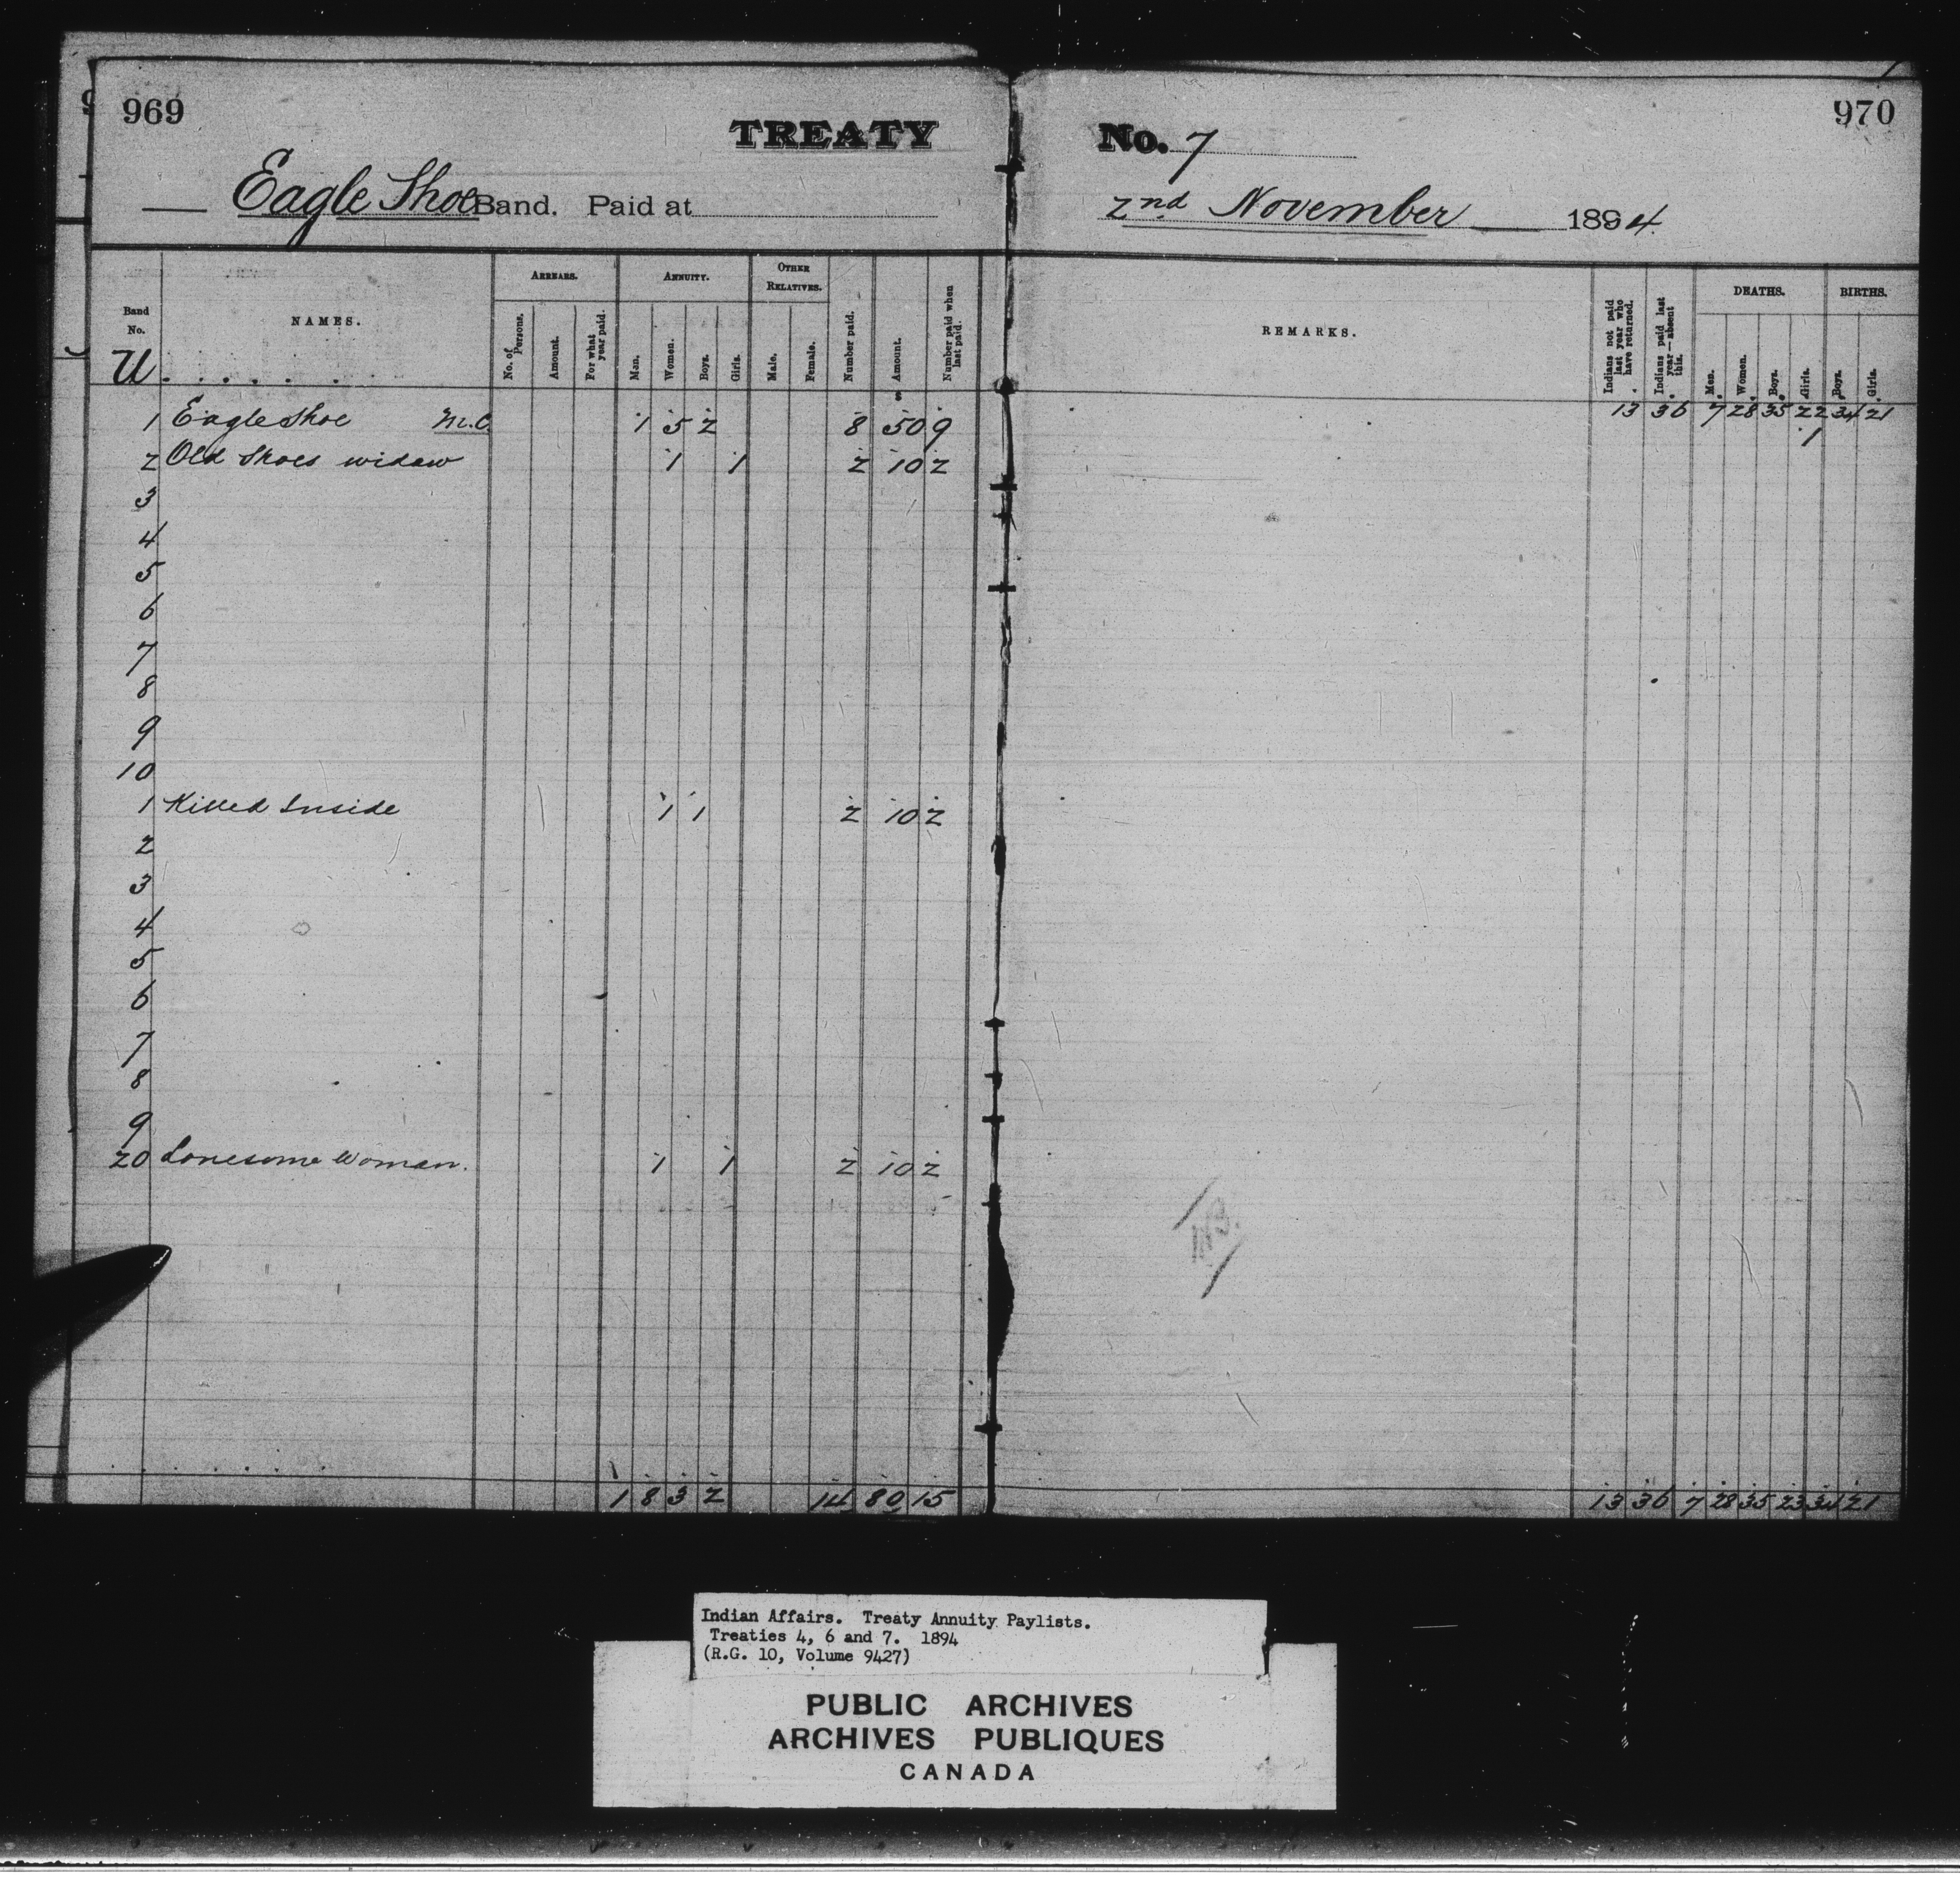 969
970
TREATY No. 7
Eagle Shoe Band. Paid at
2nd November 1894.
Band No.
NAMES.
ARREARS.
No. of Persons.
Amount.
For what year paid.
ANNUITY.
Man.
Women.
Boys.
Girls.
OTHER RELATIVES.
Male.
Female.
Number paid.
Amount.
Number paid when last paid.
REMARKS.
Indians not paid last year who have returned.
Indians paid last year—absent this.
DEATHS.
Men.
Women.
Boys.
Girls.
BIRTHS.
Boys.
Girls.
U
$
13 36 7 28 35 22 34 21
1 Eagle Shoe M.C. 1 5 2 8 50 9 1
2 Old Shoes widow 1 1 2 10 2
3
4
5
6
7
8
9
10
1 Killed Inside 1 1 2 10 2
2
3
4
5
6
7
8
9
20 Lonesome Woman. 1 1 2 10 2
1 8 3 2 14 80 15
13 36 7 28 35 23 34 21
Indian Affairs. Treaty Annuity Paylists.
Treaties 4, 6 and 7. 1894
(R.G. 10, Volume 9427)
PUBLIC ARCHIVES
ARCHIVES PUBLIQUES
CANADA